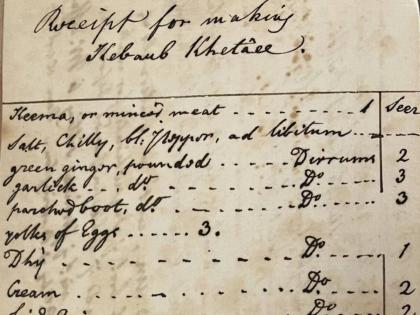 Receipt for making
Kebaub Khetâee.
Keema, or minced meat 1 Seer
Salt, Chilly, bl. Pepper, ad libitum
green ginger, pounded Dirrums 2
garlick do. Do. 3
parched boot, do. Do. 3
yolks of Eggs 3.
Dhy Do. 1
Cream Do. 2
Do. 2